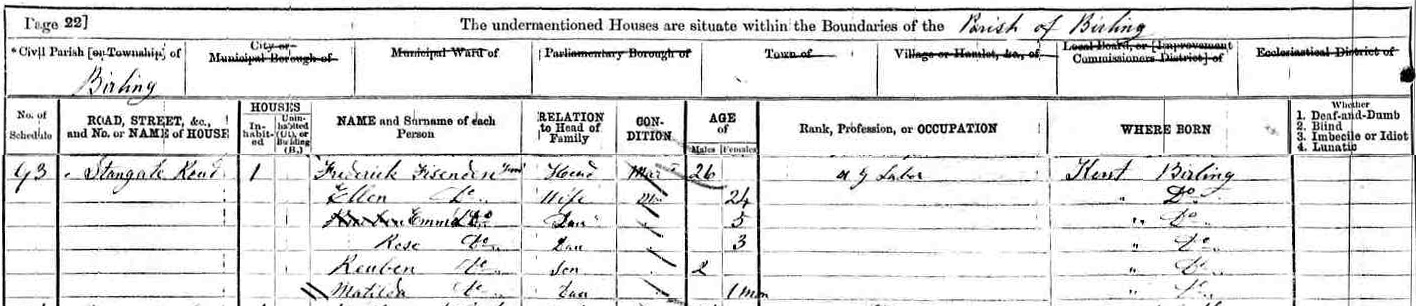 Page 22]
The undermentioned Houses are situate within the Boundaries of the Parish of Birling
*Civil Parish [or Township] of
City or Municipal Borough of
Municipal Ward of
Parliamentary Borough of
Town of
Village or Hamlet, &c., of
Local Board, or [Improvement Commissioners District] of
Ecclesiastical District of
Birling
No. of Schedule
ROAD, STREET, &c., and No. or NAME of HOUSE
HOUSES
In-habit-ed
Unin-habited (U.), or Building (B.)
NAME and Surname of each Person
RELATION to Head of Family
CON-DITION
AGE of
Males
Females
Rank, Profession, or OCCUPATION
WHERE BORN
Whether
1. Deaf-and-Dumb
2. Blind
3. Imbecile or Idiot
4. Lunatic
93 Stangate Road 1 Frederick Fisenden Head Mar 26 Ag Labor Kent Birling
Ellen Do Wife 24 " Do
Emma Do Daur 5 " Do
Rose Do Dau 3 " Do
Reuben Do Son 2 " Do
Matilda Do Dau 1 mon " Do